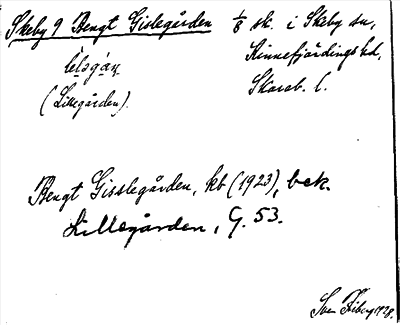 Skeby 9 Bengt Gisslegården 1/8 sk. i Skeby sn,
Kinnefjärdings hd,
lelsgán Skarab. l.
(Lillegården).
Bengt Gisslegården, kb (1923), bek.
Lillegården, G. 53.
Sven Fiberg 1928.